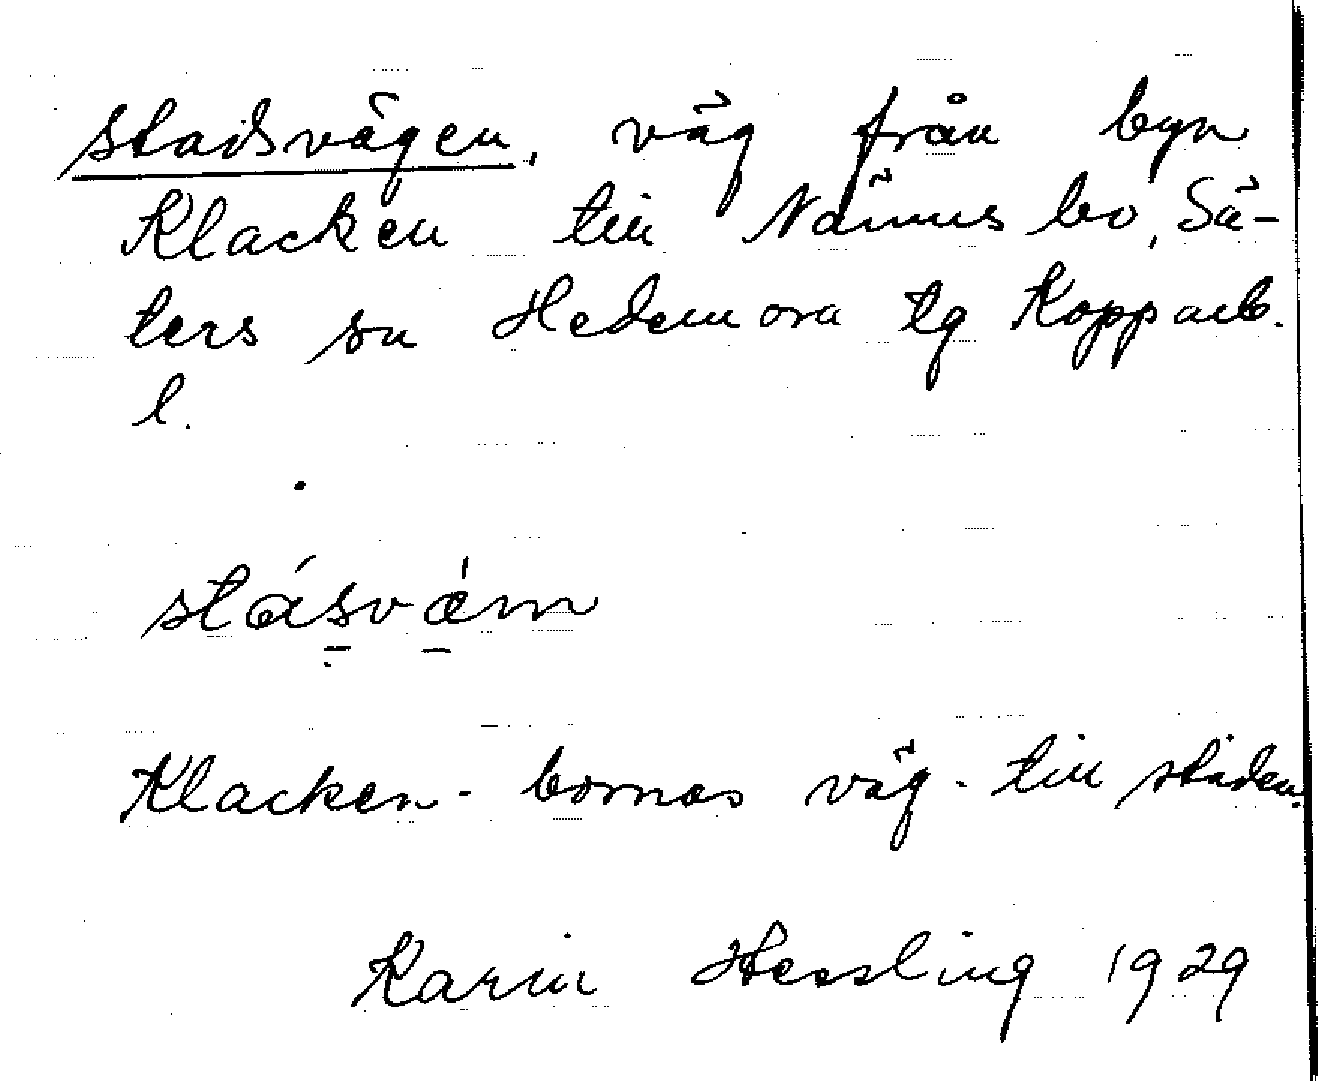 stadsvägen, väg från byn
Klacken till Nämnsbo, Sä-
ters sn Hedemora tg Kopparb.
l.
stásvǽm
Klacken-bornas väg till staden.
Karin Hessling 1929